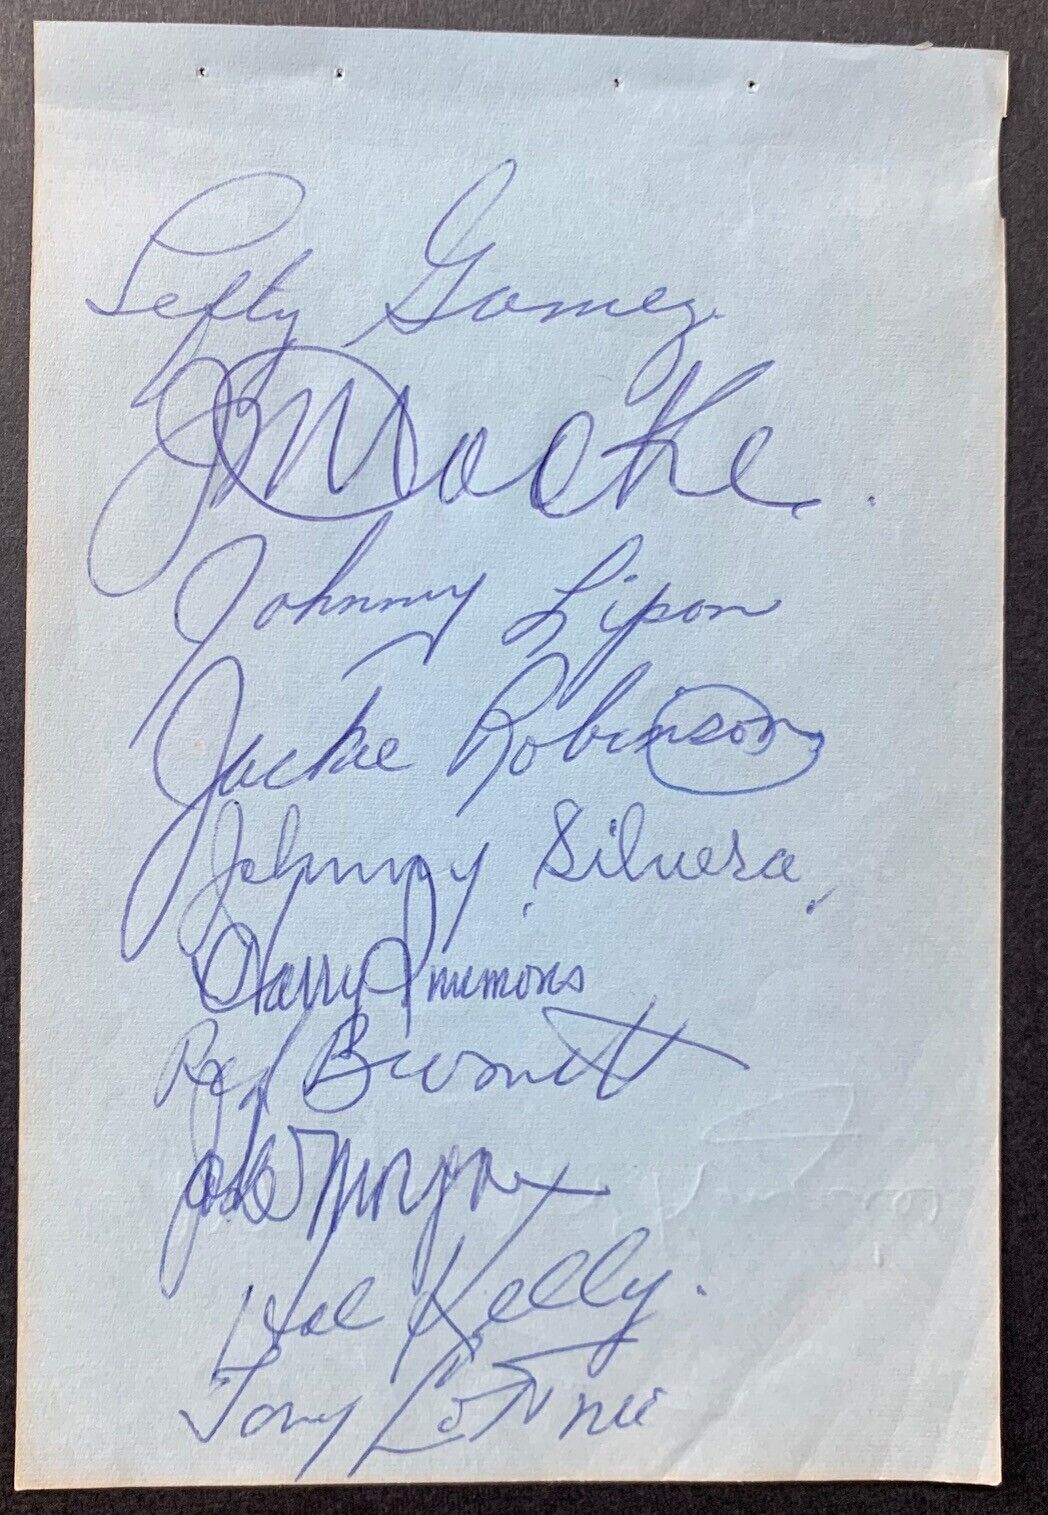 Lefty Gomez
J Mocke.
Johnny Lipon
Jackie Robinson
Johnny Silvera
Harry Simmons
Red Burnett
Joe Morgan
Hal Kelly.
Tony